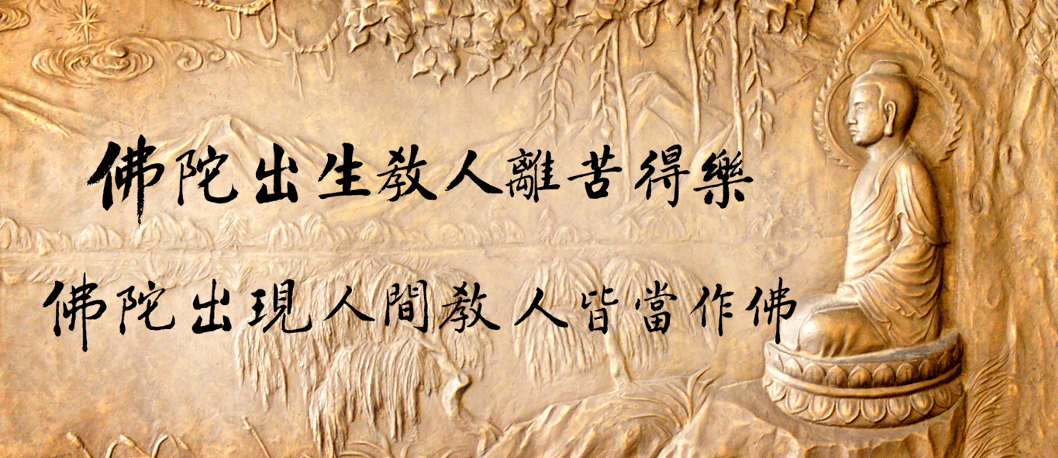 佛陀出生教人離苦得樂
佛陀出現人間教人皆當作佛